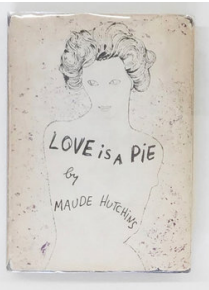 LOVE iS A PiE
by
MAUDE HUTCHINS